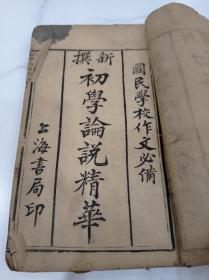 國民學校作文必備
新撰
初學論說精華
上海書局印